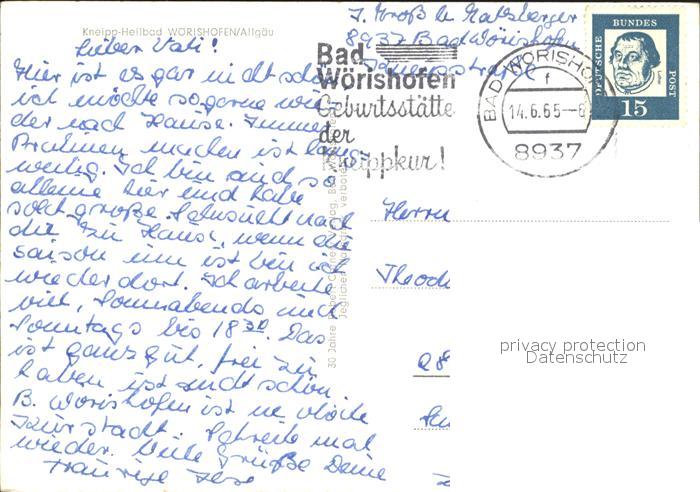 Kneipp-Heilbad WÖRISHOFEN/Allgäu
Lieber Vati!
Hier ist es gar nicht schön
ich möchte so gerne wie-
der nach Hause. Immer
Brahmen machen ist lang
weilig. Ich bin auch so
alleine hier und habe
solch große Sehnsucht nach
dir zu Hause, wenn die
saison um ist bin ich
wieder dort. Ich arbeite
viel, Sonnabends und
Sonntags bis 18 30. Das
ist ganz gut, frei zu
haben ist nicht schön
B. Wörishofen ist ne blöde
Kurstadt. Schreib mal
wieder. Viele Grüße Deine
traurige
8937 Bad Wörishofen
Bad
Wörishofen
Geburtsstätte
der
Kneippkur!
BAD WÖRISHOFEN
f
14.6.65--8
8937
DEUTSCHE BUNDES POST
15
Herrn
Theod
privacy protection
Datenschutz